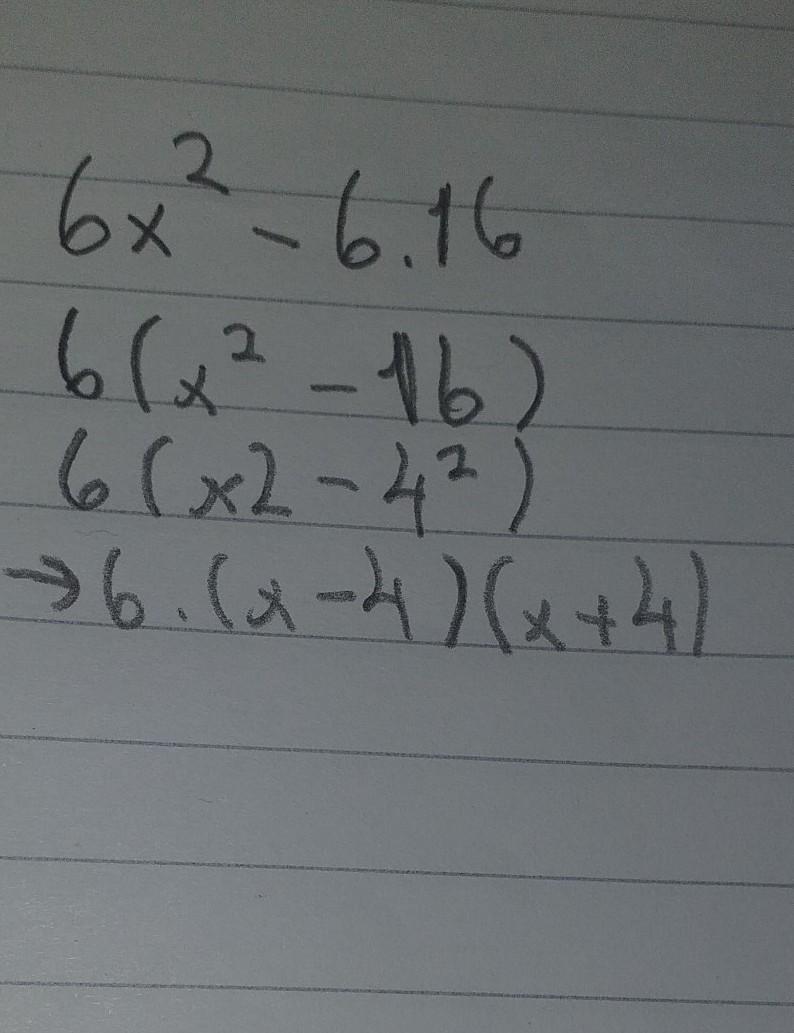 6x² - 6.16
6(x² - 16)
6(x2 - 4²)
→ 6.(x-4)(x+4)